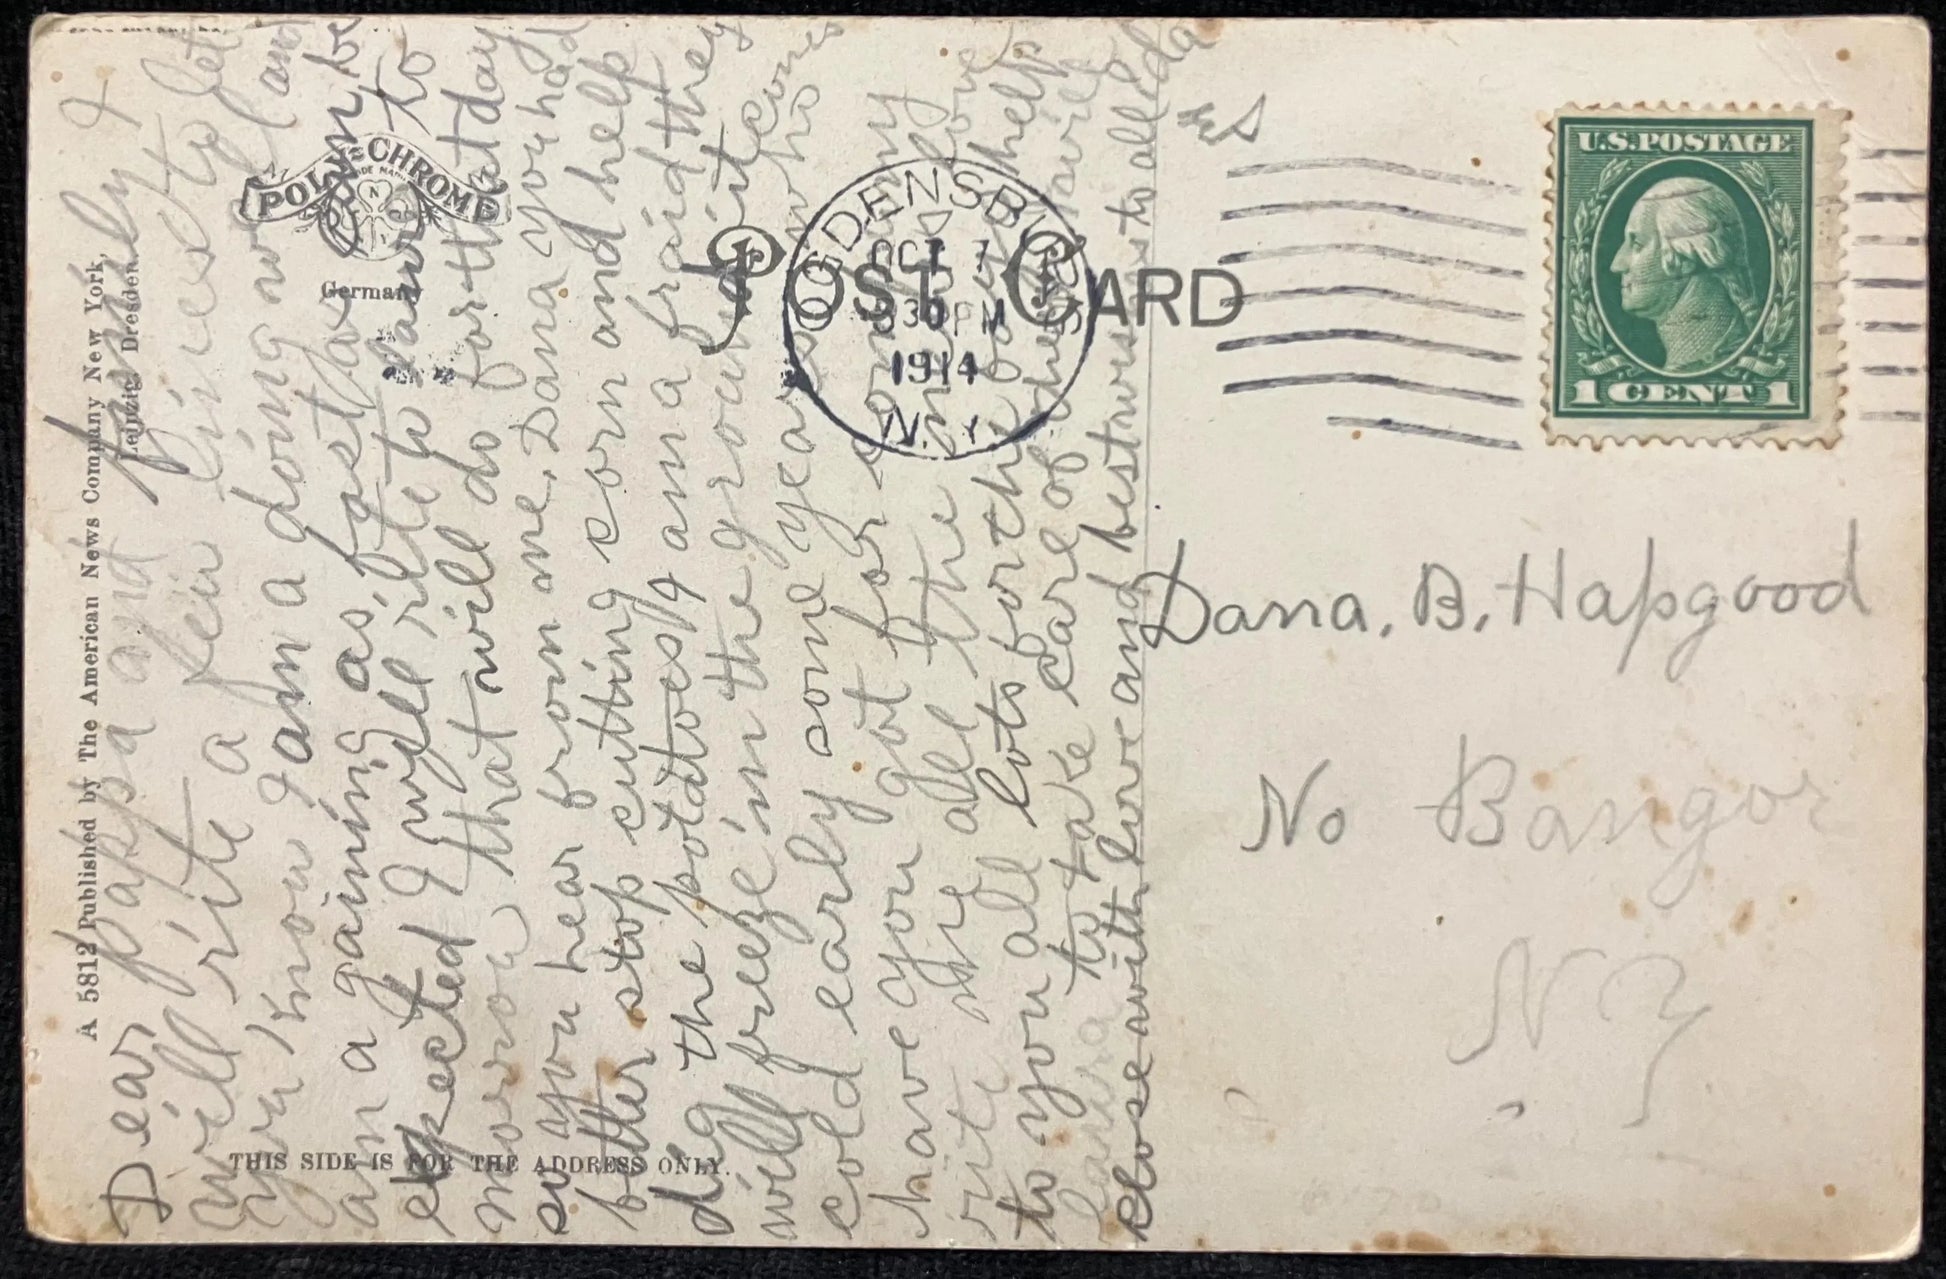 Dear pappa and family I
will rite a few lines to let
you know I am a doing well and
am a gaining as fast as can be
expected I will rite to laura to
morrow that will do for that day
so you hear from me. Dana you had
better stop cutting corn and help
dig the potatoes I am afraid they
will freeze in the ground it comes
cold early some years who
have you got for company
rite me all the news
to you all lots for the boys help
to take care of will
close with love and best wishes to all da
A 5812 Published by The American News Company New York,
Leipzig, Dresden.
POLY-CHROME
TRADE MARK
Germany
POST CARD
THIS SIDE IS FOR THE ADDRESS ONLY.
OGDENSBURG
OCT 7
830 PM
1914
N.Y.
U.S. POSTAGE
1 CENT 1
Dana, B. Hapgood
No Bangor
NY